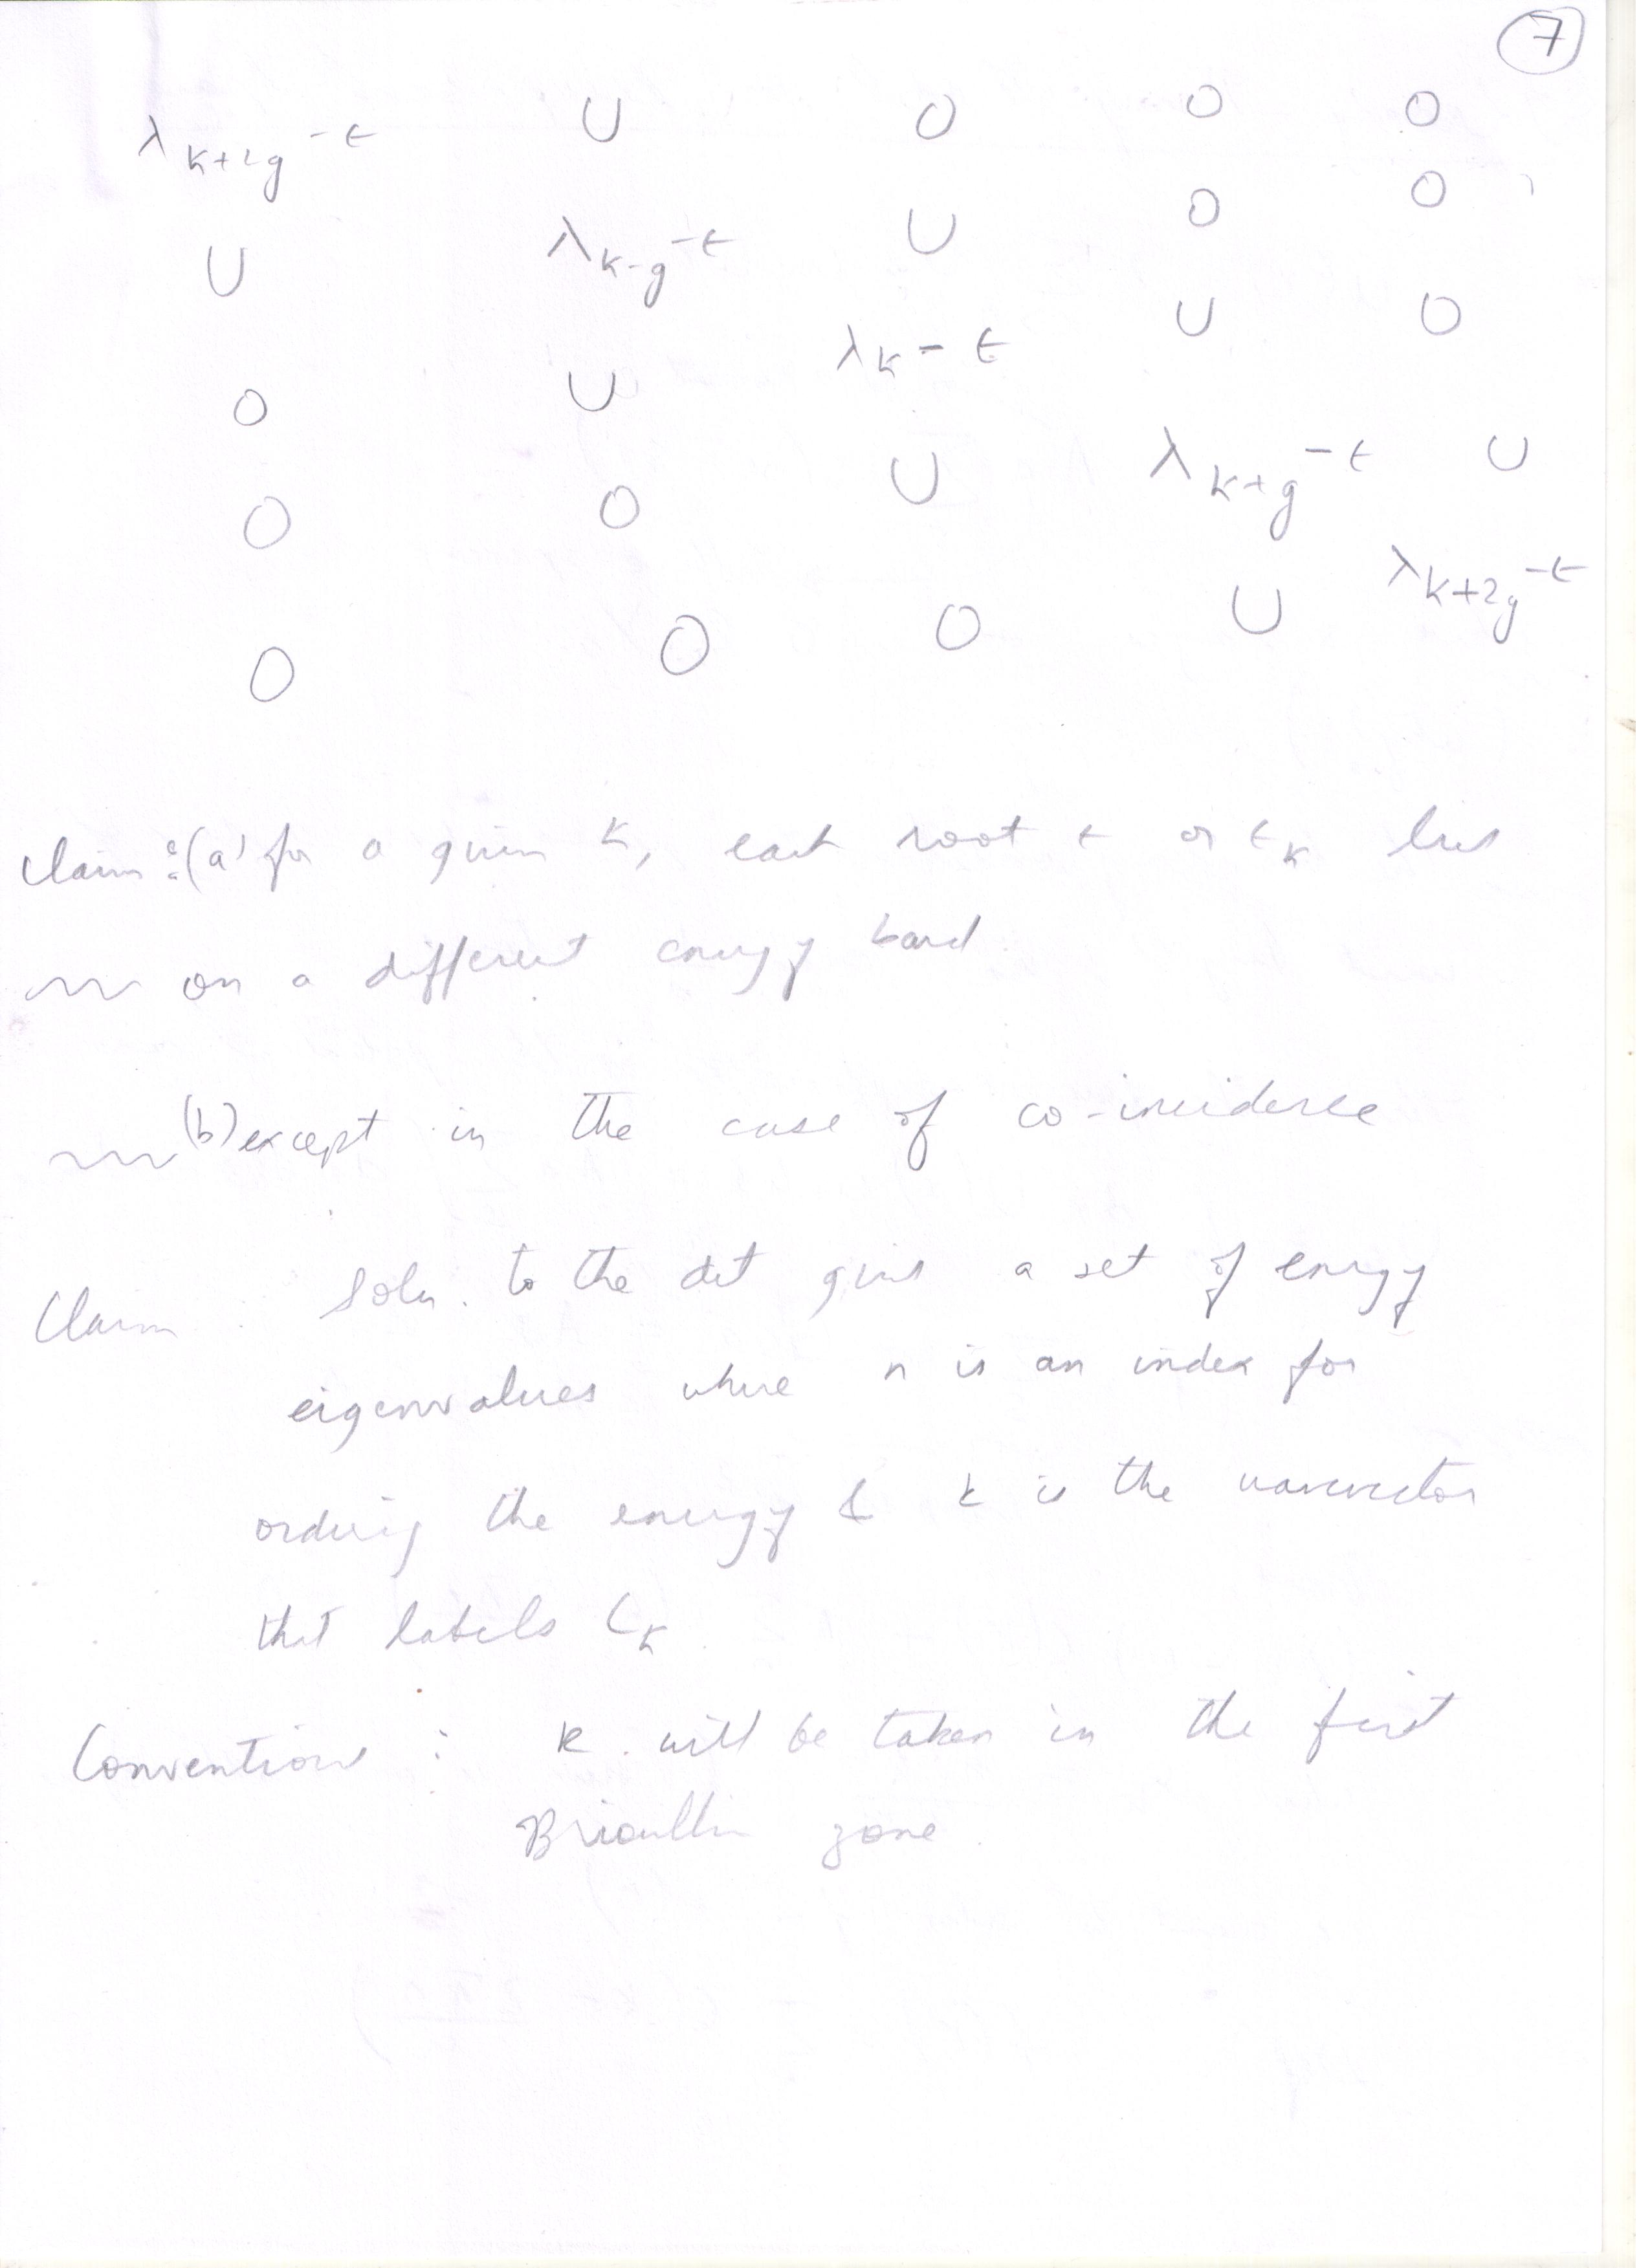 7
λ k+2g -ϵ U O O O
U λ k-g -ϵ U O O
O U λ k - ϵ U O
O O U λ k+g -ϵ U
O O O U λ k+2g -ϵ
Claim :(a) for a given k, each root ϵ or ϵ k lies
on a different energy band
(b) except in the case of co-incidence
Claim : Soln. to the det gives a set of energy
eigenvalues where n is an index for
ordering the energy & k is the wavevector
that labels C k
Conventions : k will be taken in the first
Brioullin zone